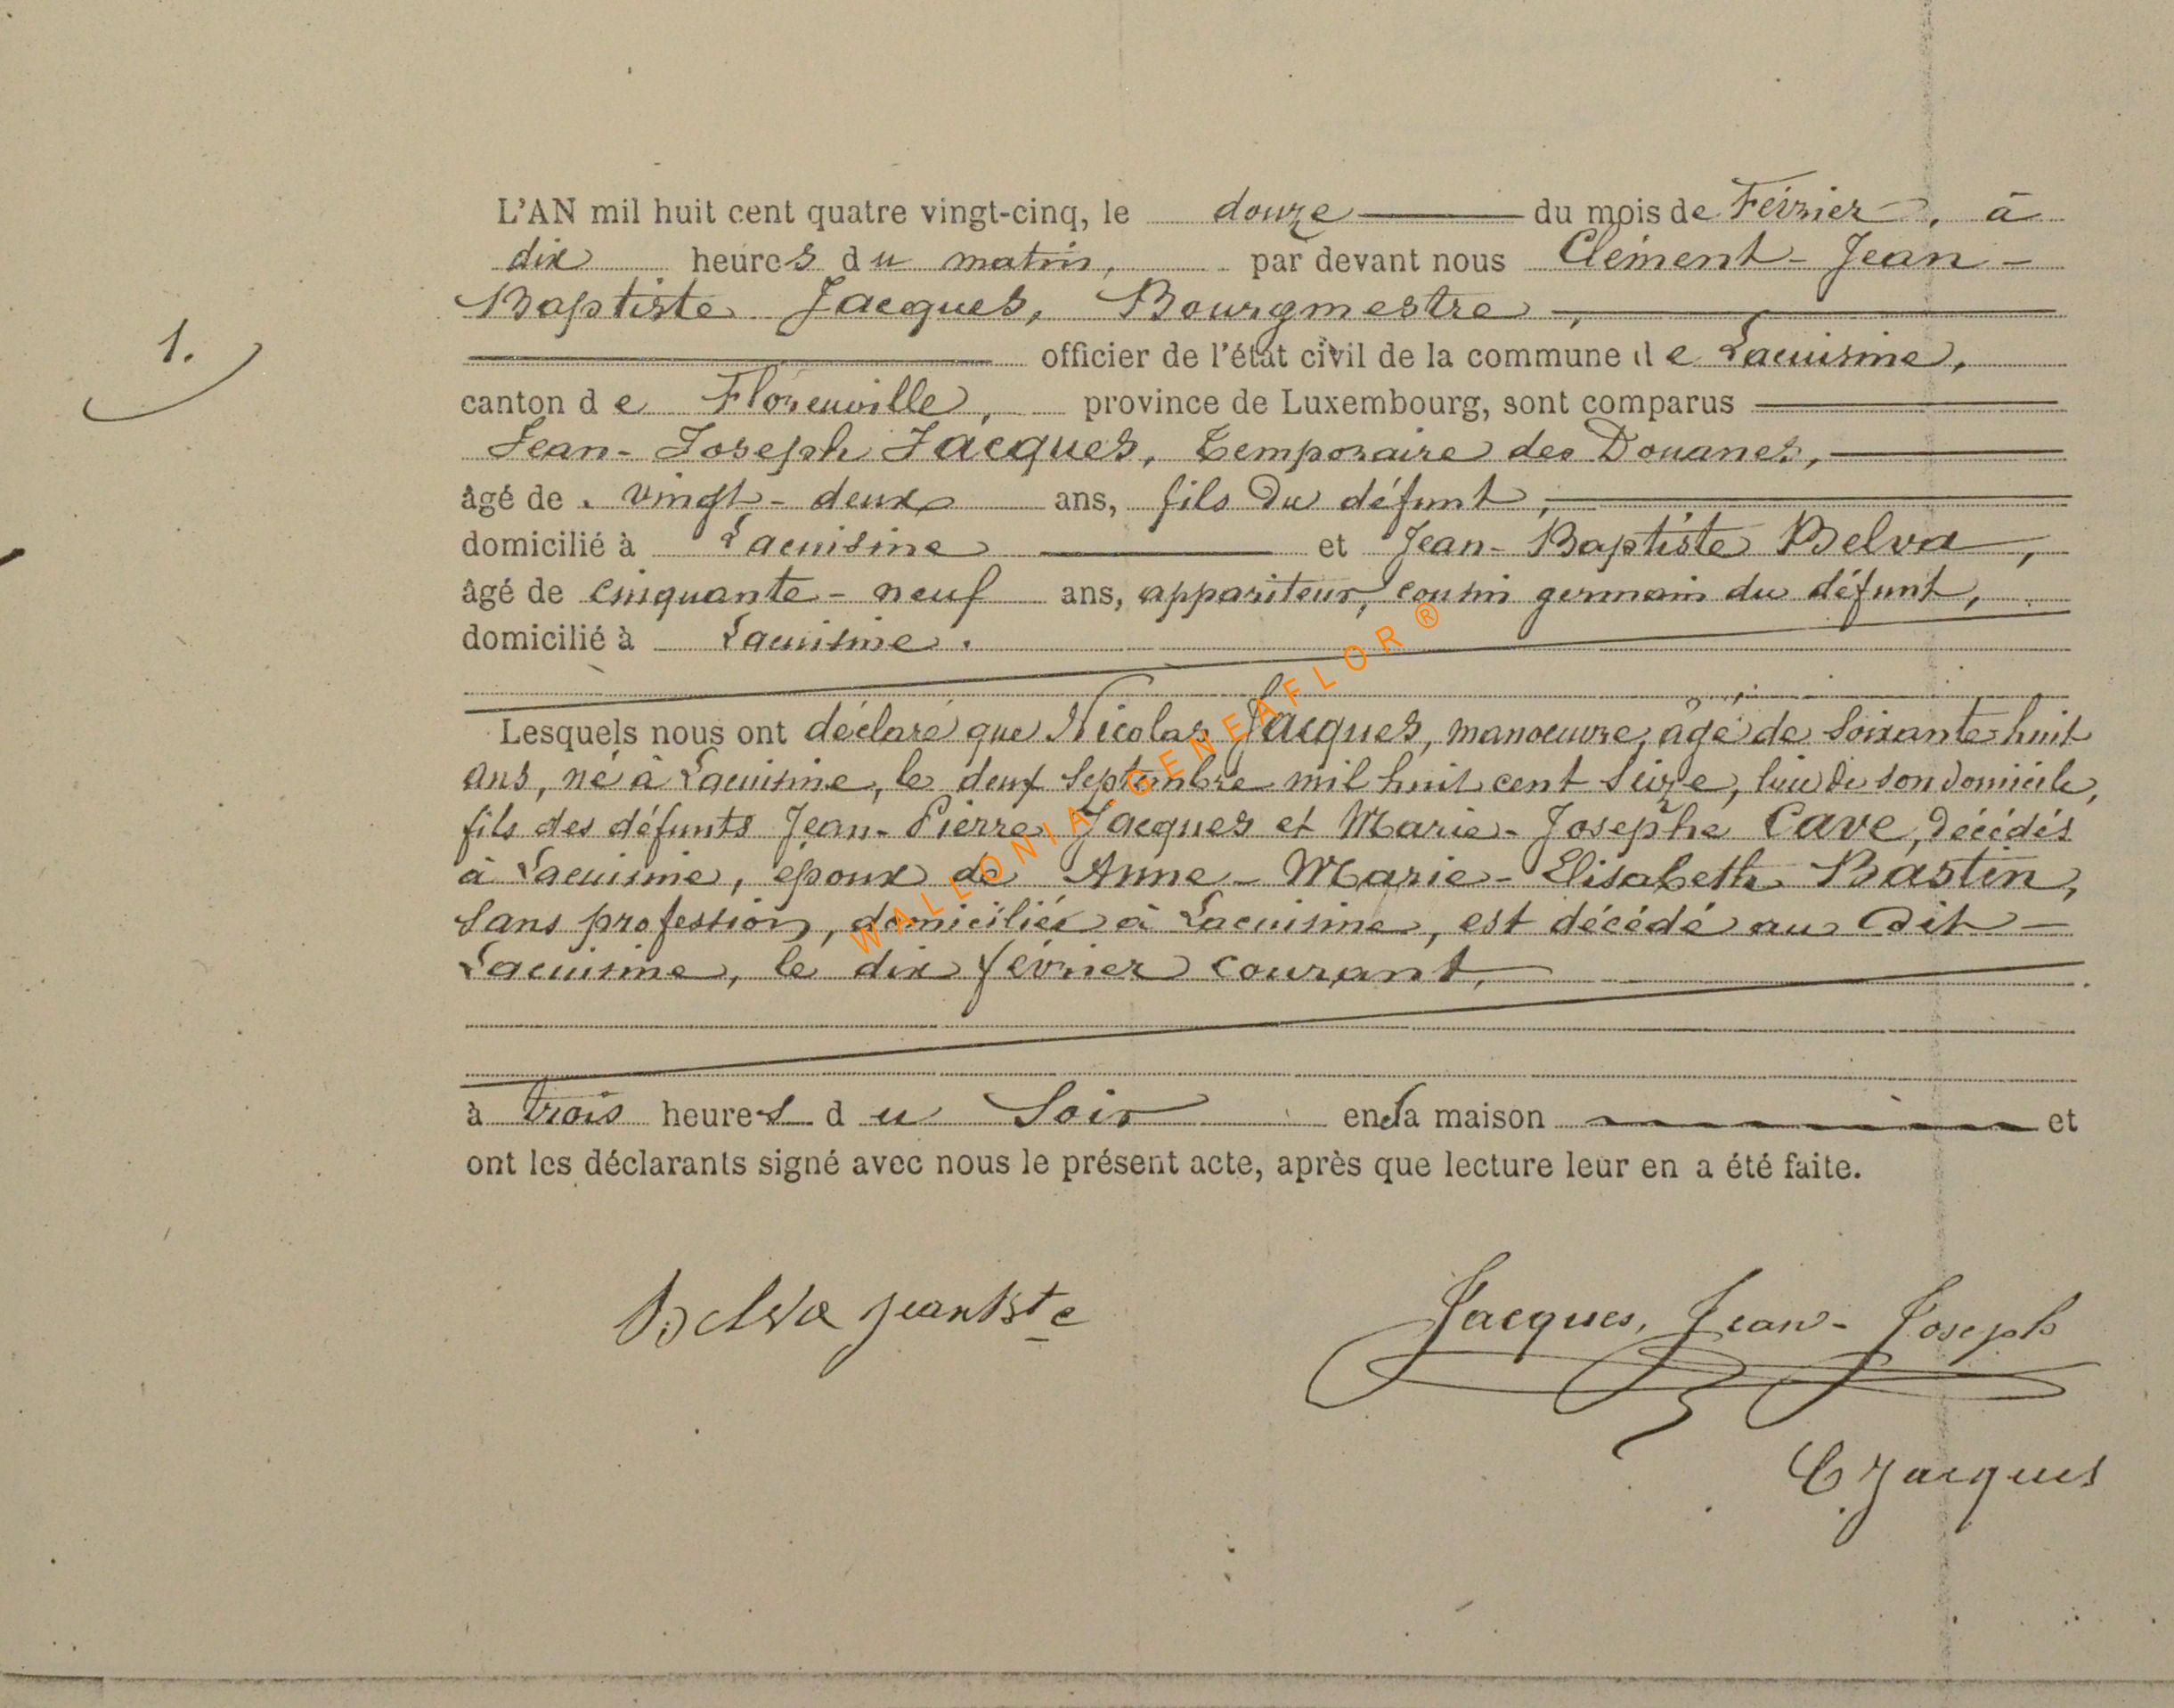 L'AN mil huit cent quatre vingt-cinq, le douze du mois de Février, à
dix heures du matin, par devant nous Clément-Jean-
Baptiste Jacques, Bourgmestre,
1.
officier de l'état civil de la commune de Lacuisine,
canton de Florenville, province de Luxembourg, sont comparus
Jean-Joseph Jacques, Temporaire des Douanes,
âgé de vingt-deux ans, fils du défunt,
domicilié à Lacuisine et Jean-Baptiste Belva,
âgé de cinquante-neuf ans, appariteur, cousin germain du défunt,
domicilié à Lacuisine.
Lesquels nous ont déclaré que Nicolas Jacques, manoeuvre, âgé de soixante-huit
ans, né à Lacuisine, le deux Septembre mil huit cent seize, lieu de son domicile,
fils des défunts Jean-Pierre Jacques et Marie-Josephe Cave, décédés
à Lacuisine, époux de Anne-Marie-Elisabeth Bastin,
sans profession, domiciliée à Lacuisine, est décédé au dit
Lacuisine, le dix février courant,
à trois heures du soir en sa maison et
ont les déclarants signé avec nous le présent acte, après que lecture leur en a été faite.
Belva jeanbste
Jacques, Jean-Joseph
C. Jacques
WALLONIA-GENEAFLOR ®